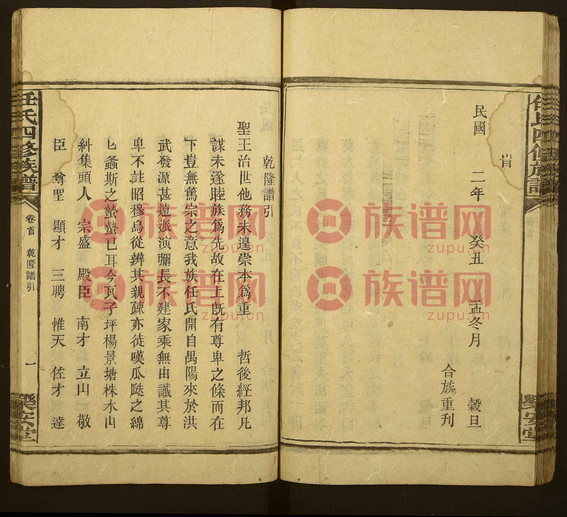 民國 二年 癸丑 孟冬月 穀旦
合族重刊
樂安堂
乾隆譜引
聖王治世他務未遑崇本為重 哲後經邦凡
謀未遂睦族為先故在上既有尊卑之條而在
下豈無篤宗之意我族任氏開自禺陽來於洪
武發源甚遠派演彌長不建家乘無由識其尊
卑不註昭穆烏從辨其親疎亦徒嘆瓜瓞之綿
匕螽斯之蟄蟄已耳今瓦子坪楊景塘株木山
糾集頭人 宗盛 殿臣 南才 立山 敬
臣 尊聖 顯才 三聘 惟天 佐才 達
任氏四修族譜
卷首 乾隆譜引
一
樂安堂
族谱网
zupu.cn